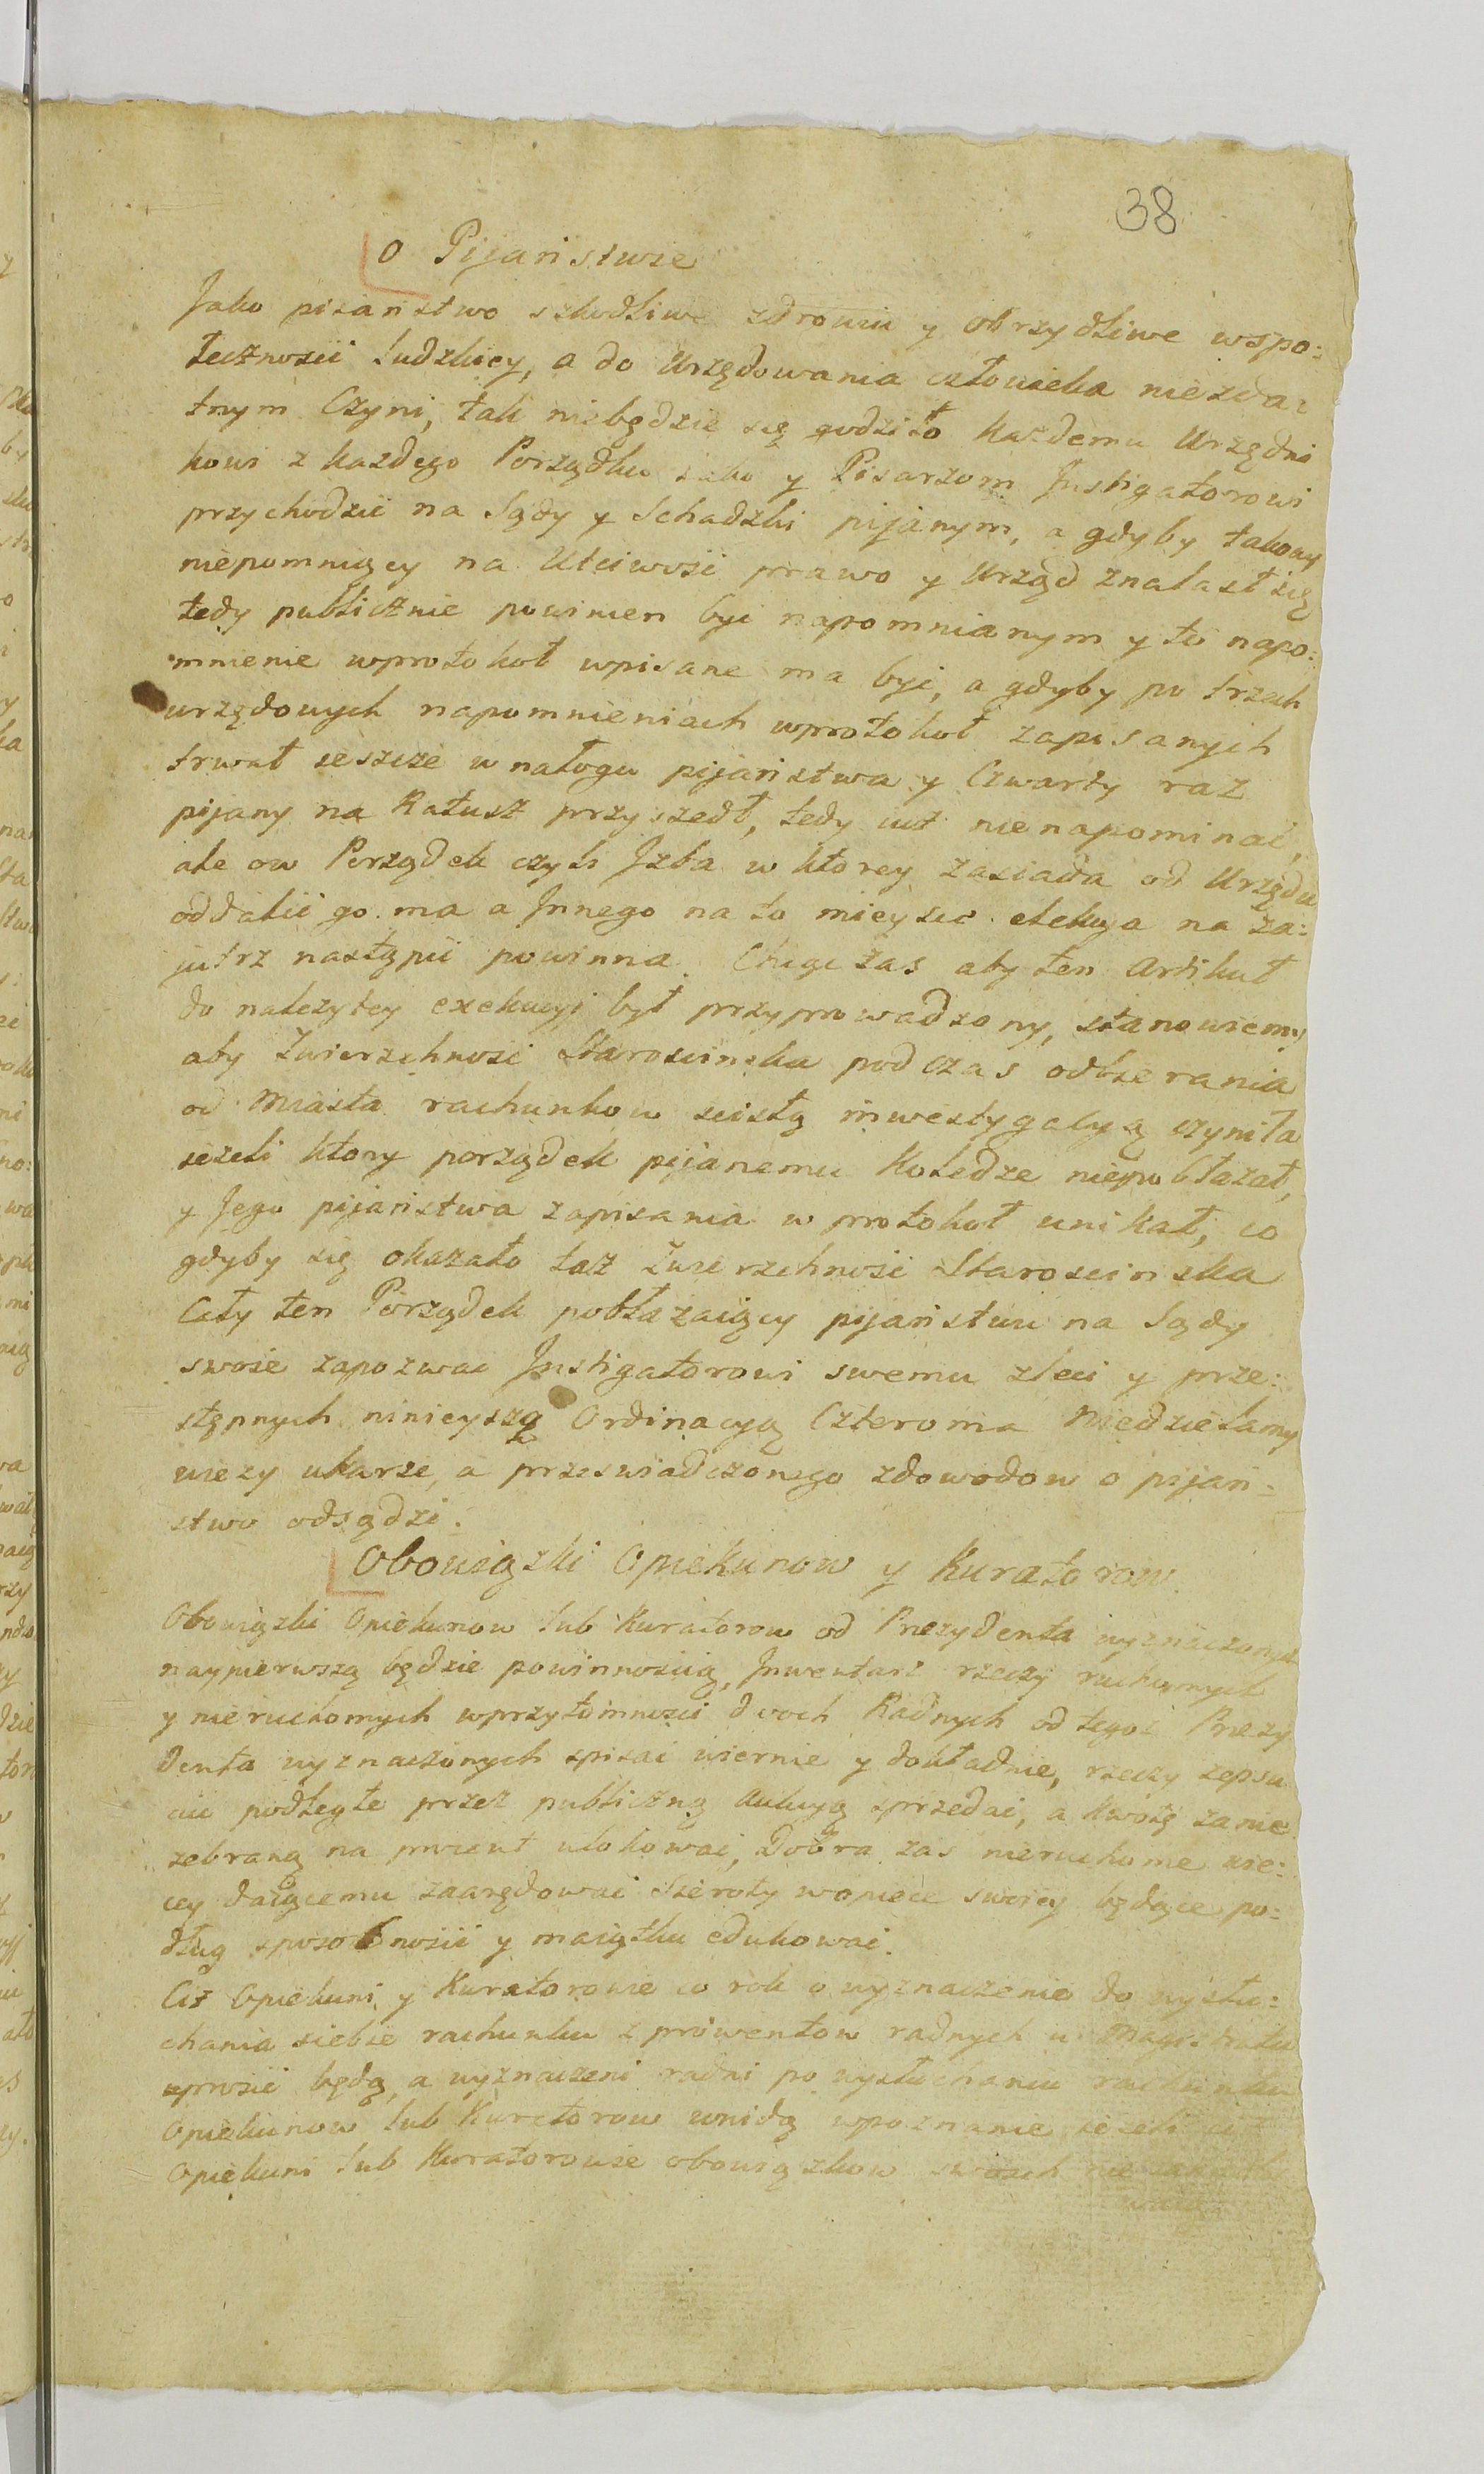 38
O Pijaństwie
Jako pijaństwo szkodliwe zdrowiu y obrzydliwe wspo:
łeczności ludzkiey, a do Urzędowania człowieka niezda:
tnym Czyni, tak niebędzie się godziło każdemu Urzędni
kowi z każdego Porządku iako y Pisarzom Instigatorowi
przychodzić na Sądy y Schadzki pijanym, a gdyby takowy
niepomniący na Uczciwość prawo y Urząd znalasł się
tedy publicznie powinien być napomnianym y to napo:
mnienie wprotokoł wpisane ma być, a gdyby po trzech
urzędowych napomnieniach wprotokoł zapisanych
trwał ieszcze w nałogu pijaństwa y Czwarty raz
pijany na Ratusz przyszedł, tedy iuż nienapominać,
ale ow Porządek czyli Izba w ktorey zasiada od Urzędu
oddalić go ma a Innego na to mieysce elekcya na za:
jutrz nastąpić powinna. Chcąc zas aby ten Artikuł
do należytey exekucyi był przyprowadzony, stanowiemy
aby Zwierzchność Starościnska podczas odbierania
od Miasta rachunkow scisłą inwestygacyą czyniła
ieżeli ktory porządek pijanemu Koledze niepobłażał,
y Jego pijaństwa zapisania w protokoł unikał, co
gdyby się okazało taż Zwierzchność Starościnska
Cały ten Porządek pobłażaiący pijaństwu na Sądy
swoie zapozwać Instigatorowi swemu zleci y prze:
stępnych ninieyszą Ordinacyą Czteroma Niedzielamy
wieży ukarze, a przeswiadczonego zdowodow o pijań:
stwo odsądzi.
Obowiązki Opiekunow y Kuratorow.
Obowiązki Opiekunow lub Kuratorow od Prezydenta wyznaczonych
naypierwszą będzie powinnością, Inwentarz rzeczy ruchomych
y nieruchomych wprzytomności dwoch Radnych od tegoż Prezy
denta wyznaczonych spisać wiernie y dokładnie, rzeczy zepsu
ciu podległe przez publiczną Aukcyą sprzedać, a kwotę zanie
zebraną na procent ulokować, Dobra zas nieruchome wie:
cey daiącemu zaarędować Sieroty wopiece swoiey będące po:
dług sposobności y maiątku edukować.
Ciż Opiekuni y Kuratorowie co rok o wyznaczenie do wysłu:
chania siebie rachunku z prowentow radnych u Magistratu
uprosić będą, a wyznaczeni radni po wysłuchaniu rachunku
Opiekunow lub Kuratorow wnidą wpoznanie ieżeli ciż
Opiekuni lub Kuratorowie obowiązkow swoich nie